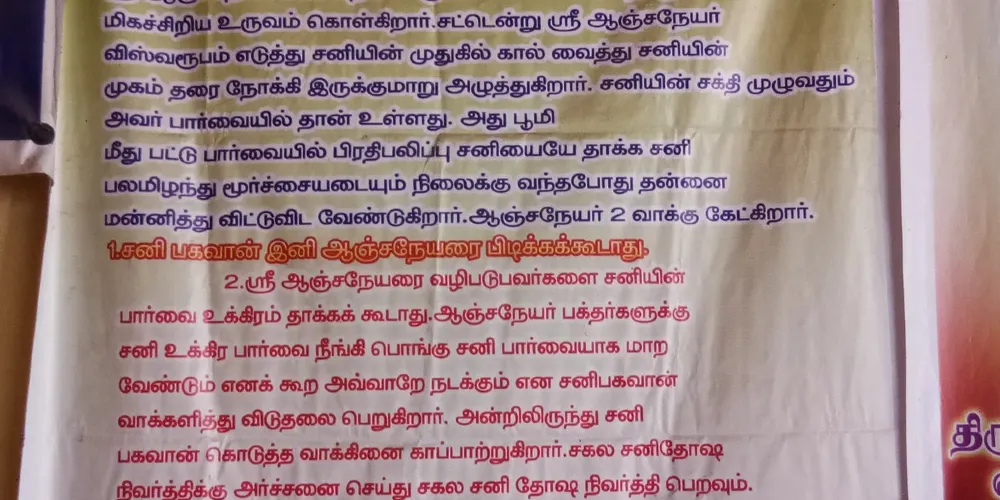 மிகச்சிறிய உருவம் கொள்கிறார்.சட்டென்று ஸ்ரீ ஆஞ்சநேயர்
விஸ்வரூபம் எடுத்து சனியின் முதுகில் கால் வைத்து சனியின்
முகம் தரை நோக்கி இருக்குமாறு அழுத்துகிறார். சனியின் சக்தி முழுவதும்
அவர் பார்வையில் தான் உள்ளது. அது பூமி
மீது பட்டு பார்வையில் பிரதிபலிப்பு சனியையே தாக்க சனி
பலமிழந்து மூர்ச்சையடையும் நிலைக்கு வந்தபோது தன்னை
மன்னித்து விட்டுவிட வேண்டுகிறார்.ஆஞ்சநேயர் 2 வாக்கு கேட்கிறார்.
1.சனி பகவான் இனி ஆஞ்சநேயரை பிடிக்கக்கூடாது.
2.ஸ்ரீ ஆஞ்சநேயரை வழிபடுபவர்களை சனியின்
பார்வை உக்கிரம் தாக்கக் கூடாது.ஆஞ்சநேயர் பக்தர்களுக்கு
சனி உக்கிர பார்வை நீங்கி பொங்கு சனி பார்வையாக மாற
வேண்டும் எனக் கூற அவ்வாறே நடக்கும் என சனிபகவான்
வாக்களித்து விடுதலை பெறுகிறார். அன்றிலிருந்து சனி
பகவான் கொடுத்த வாக்கினை காப்பாற்றுகிறார்.சகல சனிதோஷ
நிவர்த்திக்கு அர்ச்சனை செய்து சகல சனி தோஷ நிவர்த்தி பெறவும்.